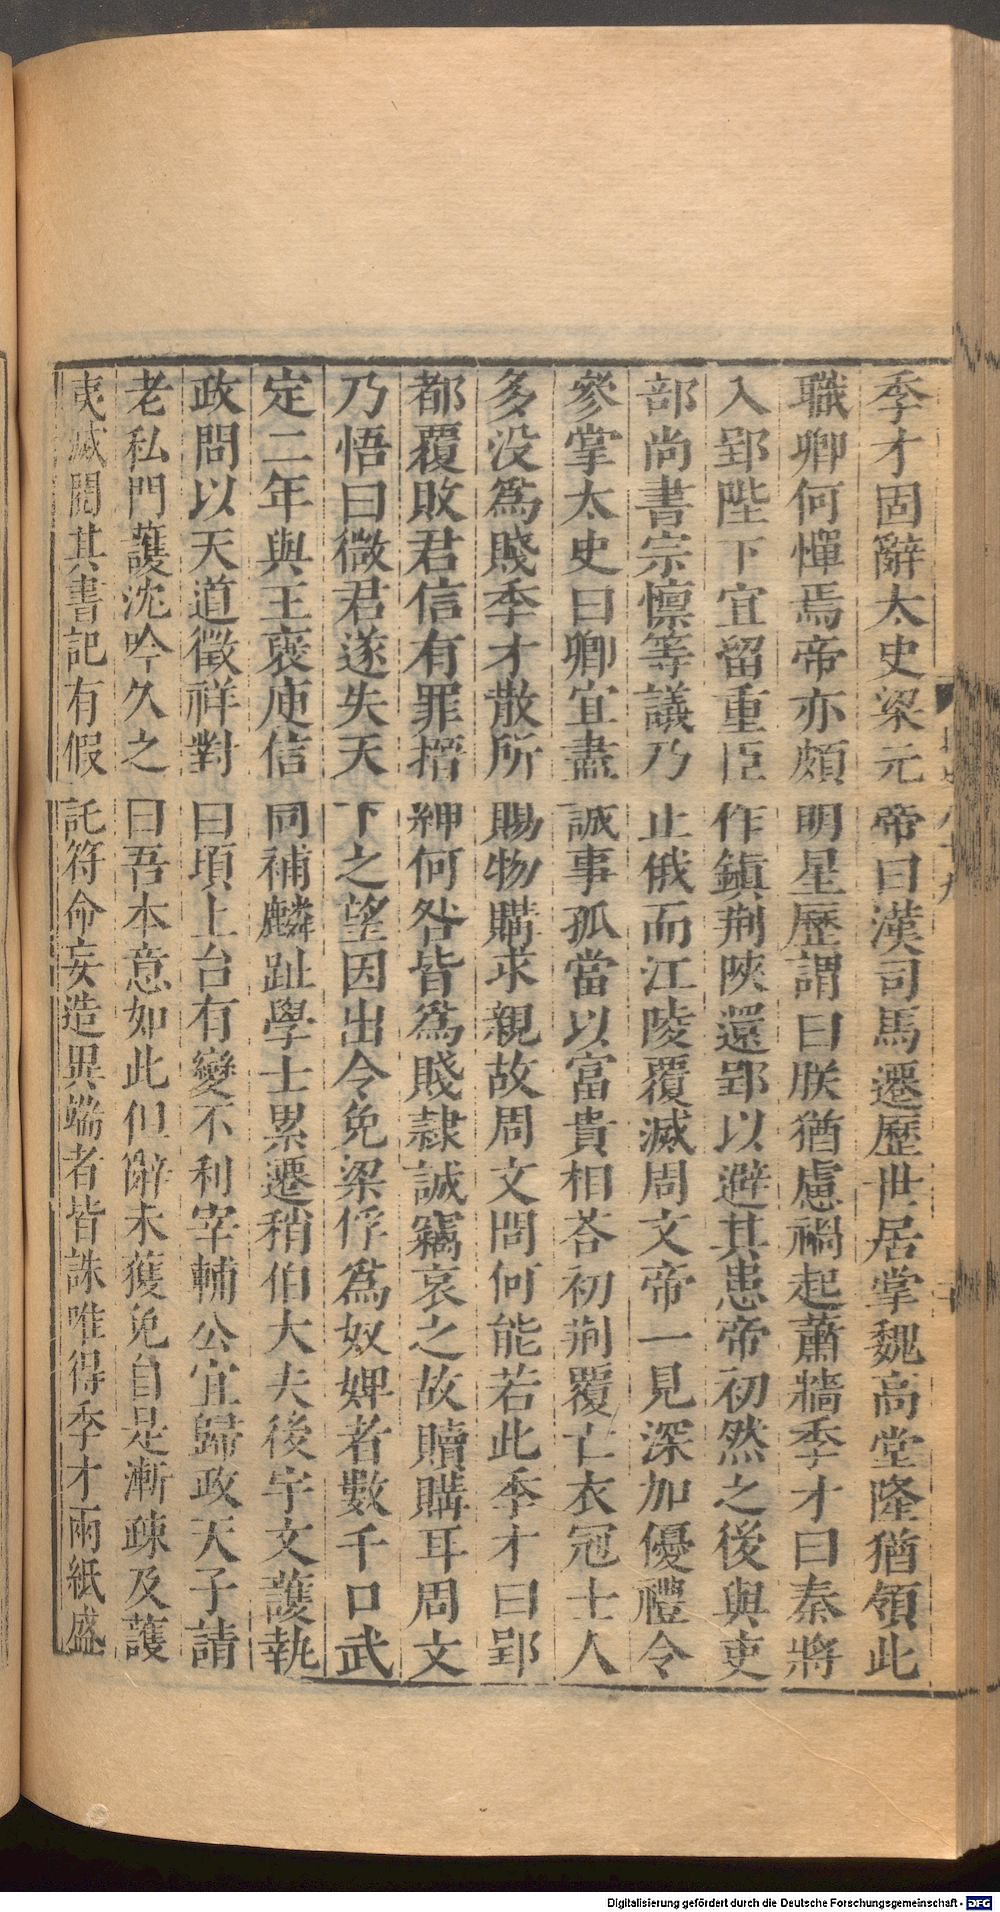 季才固辭太史梁元帝曰漢司馬遷歷世居掌魏高堂隆猶領此
職卿何憚焉帝亦頗明星歷謂曰朕猶慮禍起蕭牆季才曰秦將
入郢陛下宜留重臣作鎮荆陜還郢以避其患帝初然之後與吏
部尚書宗懍等議乃止俄而江陵覆滅周文帝一見深加優禮令
參掌太史曰卿宜盡誠事孤當以富貴相荅初荆覆亡衣冠士人
多没爲賤季才散所賜物購求親故周文問何能若此季才曰郢
都覆敗君信有罪搢紳何咎皆爲賤隷誠竊哀之故贖購耳周文
乃悟曰微君遂失天下之望因出令免梁俘爲奴婢者數千口武
定二年與王褒庾信同補麟趾學士累遷稍伯大夫後宇文護執
政問以天道徵祥對曰頃上台有變不利宰輔公宜歸政天子請
老私門護沈吟久之曰吾本意如此但辭未獲免自是漸疎及護
夷滅閲其書記有假託符命妄造異端者皆誅唯得季才兩紙盛
Digitalisierung gefördert durch die Deutsche Forschungsgemeinschaft - DFG